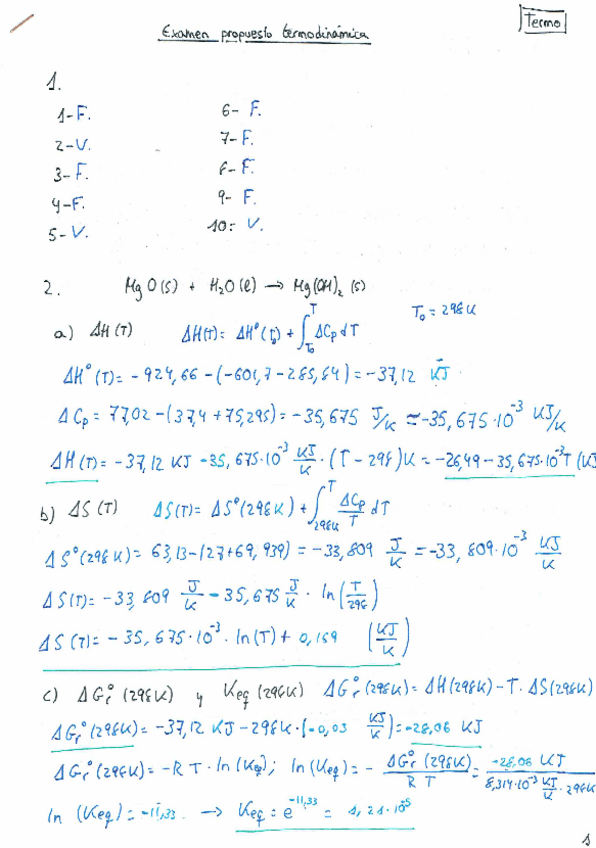 Termo
Examen propuesto termodinámica
1.
1- F.
2- V.
3- F.
4- F.
5- V.
6- F.
7- F.
8- F.
9- F.
10- V.
2. MgO(s) + H₂O(l) → Mg(OH)₂ (s)
T₀ = 298K
a) ΔH(T) ΔH(T) = ΔH°(T₀) + ∫_{T₀}^{T} ΔCp dT
ΔH°(T) = -924,66 -(-601,7-285,84) = -37,12 KJ
ΔCp = 77,02 -(37,4 + 75,295) = -35,675 J/K ≈ -35,675·10⁻³ KJ/K
ΔH(T) = -37,12 KJ -35,675·10⁻³ KJ/K · (T-298)K = -26,49 - 35,675·10⁻³T (KJ
b) ΔS(T) ΔS(T) = ΔS°(298K) + ∫_{298K}^{T} ΔCp/T dT
ΔS°(298K) = 63,13 -(27+69,939) = -33,809 J/K = -33,809·10⁻³ KJ/K
ΔS(T) = -33,809 J/K - 35,675 J/K · ln(T/298)
ΔS(T) = -35,675·10⁻³ · ln(T) + 0,169 (KJ/K)
c) ΔGr°(298K) y Keq(298K) ΔGr°(298K) = ΔH(298K) - T·ΔS(298K)
ΔGr°(298K) = -37,12 KJ - 298K·(-0,03 KJ/K) = -28,06 KJ
ΔGr°(298K) = -R T·ln(Keq); ln(Keq) = - ΔGr°(298K)/R T = -28,06 KJ/8,314·10⁻³ KJ/K·298K
ln(Keq) = -11,33 → Keq = e^{-11,33} = 1,21·10⁻⁵
1